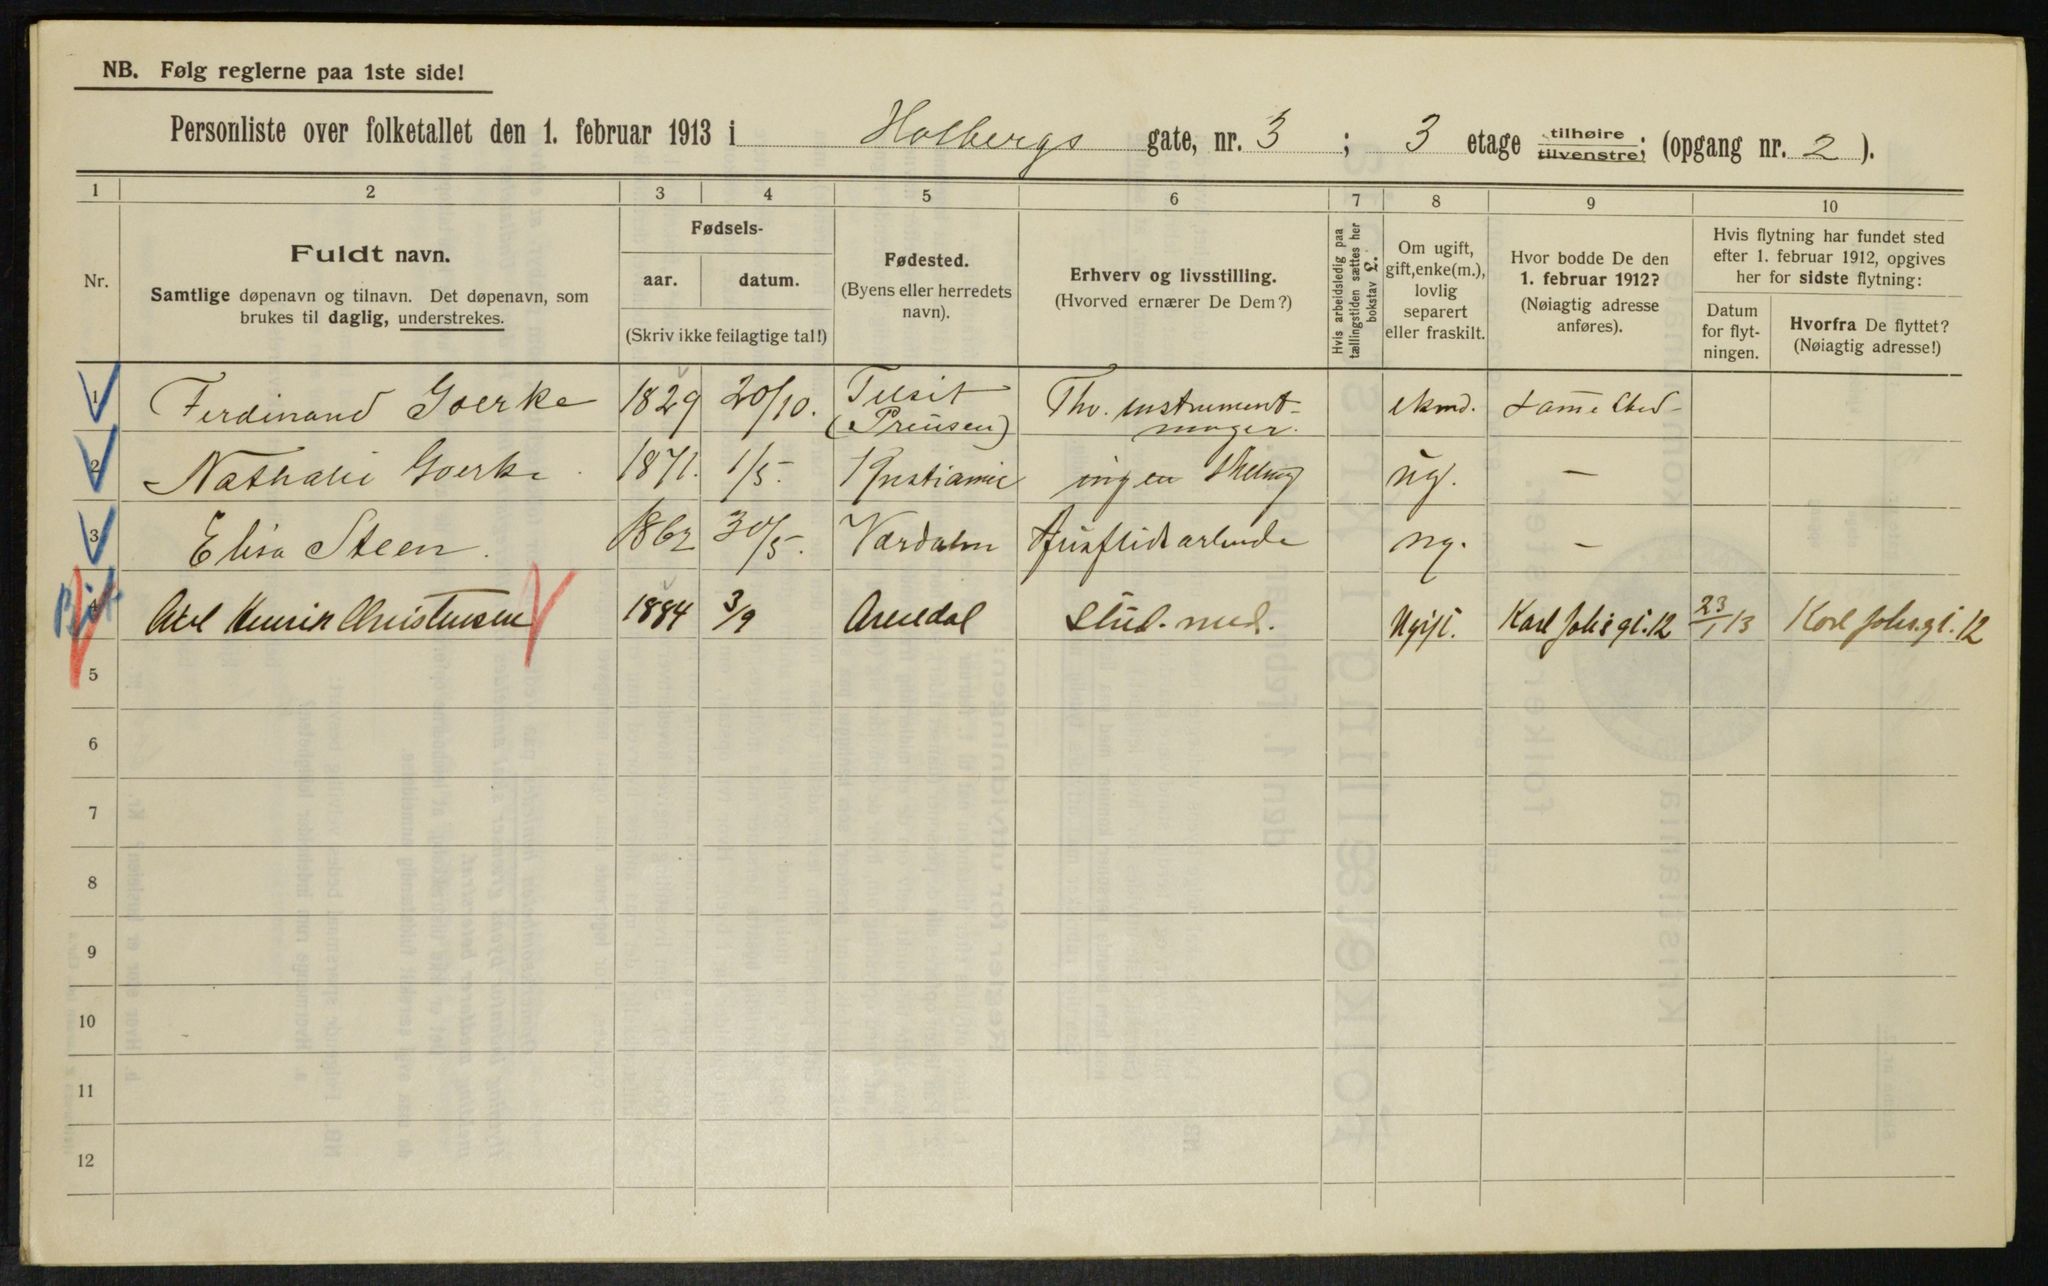 NB. Følg reglerne paa 1ste side!
Personliste over folketallet den 1. februar 1913 i Holbergs gate, nr. 3 ; 3 etage tilhøire tilvenstre; (opgang nr. 2 ).
1 2 3 4 5 6 7 8 9 10
Nr.
Fuldt navn.
Samtlige døpenavn og tilnavn. Det døpenavn, som
brukes til daglig, understrekes.
Fødsels-
aar. datum.
(Skriv ikke feilagtige tal!)
Fødested.
(Byens eller herredets
navn).
Erhverv og livsstilling.
(Hvorved ernærer De Dem?)
Hvis arbeidsledig paa
tællingstiden sættes her
bokstav L.
Om ugift,
gift, enke(m.),
lovlig
separert
eller fraskilt.
Hvor bodde De den
1. februar 1912?
(Nøiagtig adresse
anføres).
Hvis flytning har fundet sted
efter 1. februar 1912, opgives
her for sidste flytning:
Datum
for flyt-
ningen.
Hvorfra De flyttet?
(Nøiagtig adresse!)
1 Ferdinand Goerke 1829 20/10. Tilsit (Preusen) Fhv. instrument- mager. ekmd. samme sted
2 Nathalie Goerke 1871. 1/5. Kristiania ingen Stilling ug. —
3 Elisa Steen. 1862 30/5. Værdalen Husflidsarbeide ug. —
4 Axel Henrik Christensen 1884 3/9 Arendal Stud. med. Ugift. Karl Johs gt. 12 23/1 13 Karl Johs. gt. 12
5
6
7
8
9
10
11
12